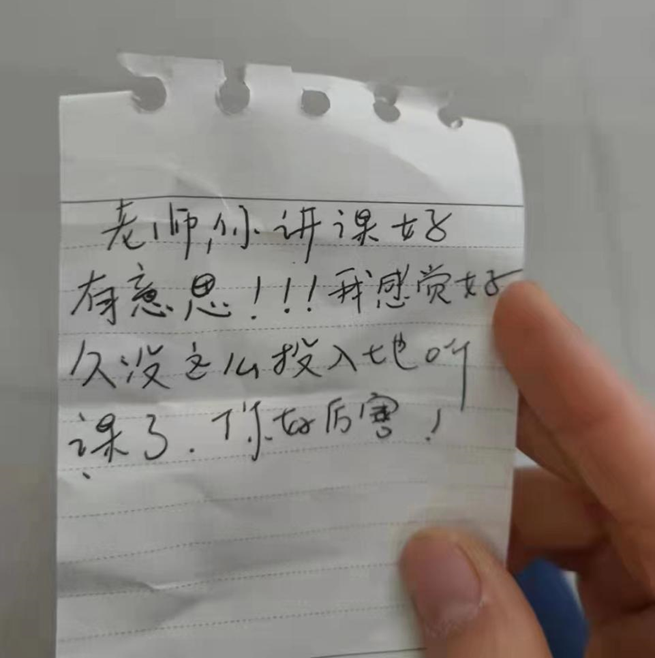 老师,你讲课好
有意思!!!我感觉好
久没这么投入地听
课了.你好厉害!